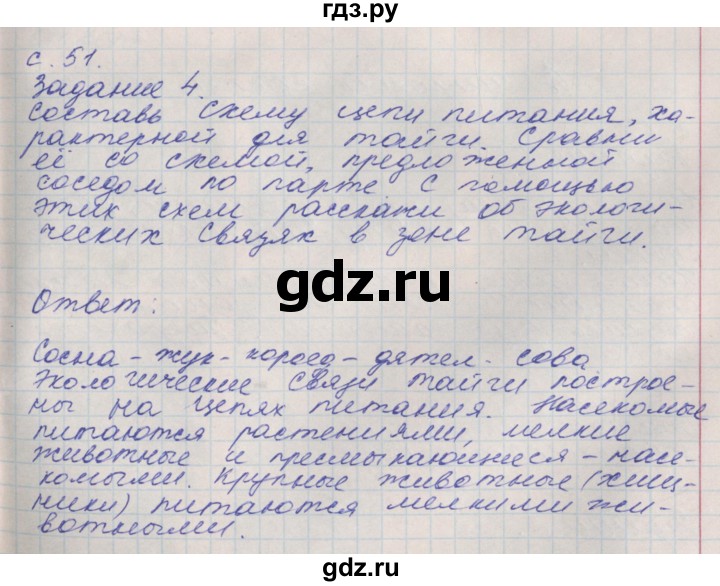 гдз.ру
с. 51.
Задание 4.
Составь схему цепи питания, ха-
рактерной для тайги. Сравни
её со схемой, предложенной
соседом по парте С помощью
этих схем расскажи об экологи-
ческих связях в зоне тайги.
gdz.ru
Ответ:
Сосна - жук - короед - дятел - сова
Экологические связи тайги построе-
ны на цепях питания. Насекомые
питаются растениями, мелкие
животные и пресмыкающиеся - насе-
комыми. Крупные животные (хищ-
ники) питаются мелкими жи-
вотными.
gdz.ru